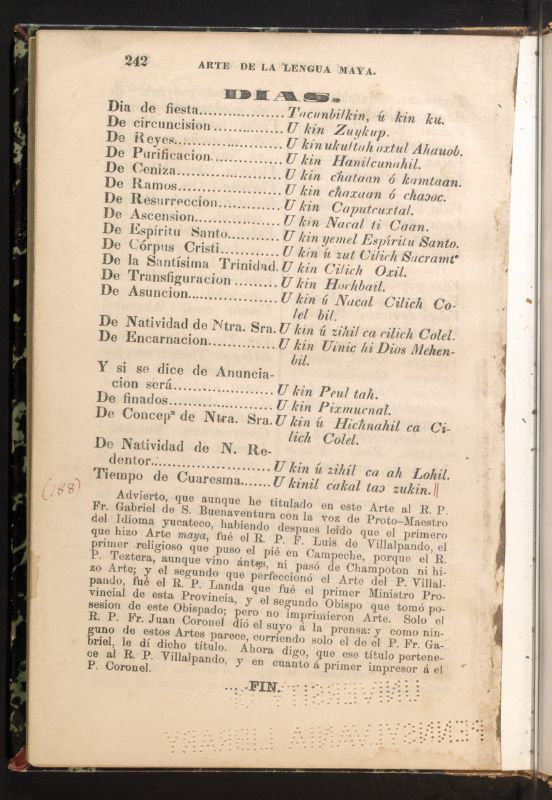 242
ARTE DE LA LENGUA MAYA.
DIAS.
Dia de fiesta.................Tacunbilkin, ú kin ku.
De circuncision ..............U kin Zuykup.
De Reyes......................U kin ukultah oxtul Ahauob.
De Purificacion...............U kin Hanilcunahil.
De Ceniza.....................U kin chataan ó kamtaan.
De Ramos......................U kin chaxaan ó chaɔoc.
De Resurreccion...............U kin Caputcuxtal.
De Ascension..................U kin Nacal ti Caan.
De Espíritu Santo.............U kin yemel Espíritu Santo.
De Córpus Cristi..............U kin ú zut Cilich Sacramtº
De la Santísima Trinidad.U kin Cilich Oxil.
De Transfiguracion ...........U kin Hochbail.
De Asuncion...................U kin ú Nacal Cilich Co-
lel bil.
De Natividad de Ntra. Sra.U kin ú zihil ca cilich Colel.
De Encarnacion................U kin Uinic hi Dios Mehen-
bil.
Y si se dice de Anuncia-
cion será.....................U kin Peul tah.
De finados....................U kin Pixmucnal.
De Concepª de Ntra. Sra.U kin ú Hichnahil ca Ci-
lich Colel.
De Natividad de N. Re-
dentor........................U kin ú zihil ca ah Lohil.
Tiempo de Cuaresma.......U kinil cakal taɔ zukin.
(188)
Advierto, que aunque he titulado en este Arte al R. P.
Fr. Gabriel de S. Buenaventura con la voz de Proto-Maestro
del Idioma yucateco, habiendo despues leido que el primero
que hizo Arte maya, fué el R. P. F. Luis de Villalpando, el
primer religioso que puso el pié en Campeche, porque el R.
P. Teztera, aunque vino ántes, ni pasó de Champoton ni hi-
zo Arte; y el segundo que perfeccionó el Arte del P. Villal-
pando, fué el R. P. Landa que fué el primer Ministro Pro-
vincial de esta Provincia, y el segundo Obispo que tomó po-
sesion de este Obispado; pero no imprimieron Arte. Solo el
R. P. Fr. Juan Coronel dió el suyo á la prensa: y como nin-
guno de estos Artes parece, corriendo solo el de el P. Fr. Ga-
briel, le dí dicho título. Ahora digo, que ese título pertene-
ce al R. P. Villalpando, y en cuanto á primer impresor á el
P. Coronel.
.....FIN.
UNIVERSITY OF
PENNSYLVANIA LIBRARY